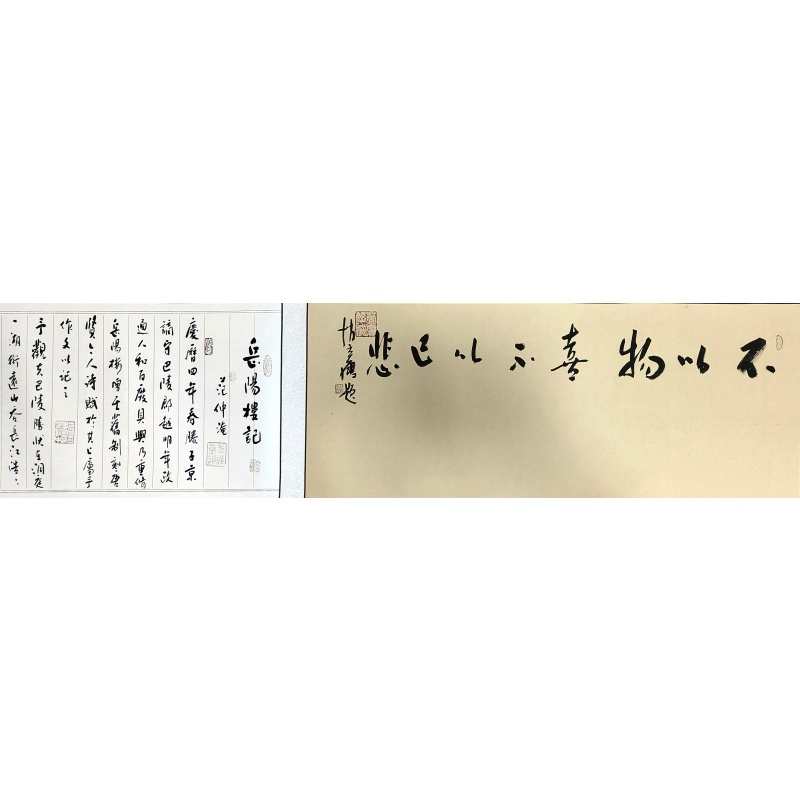 不以物喜不以己悲
岳陽樓記
范仲淹
慶曆四年春滕子京
謫守巴陵郡越明年政
通人和百廢具興乃重脩
岳陽樓增其舊制刻唐
賢今人诗賦於其上屬予
作文以记之
予觀夫巴陵勝狀在洞庭
一湖銜遠山吞長江浩々